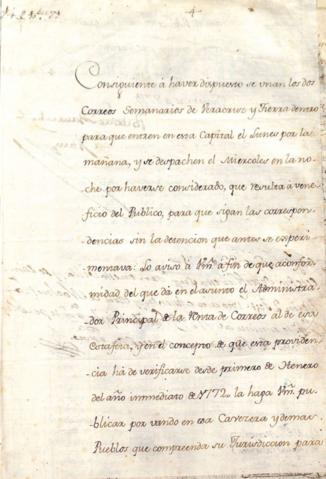 -4-
Consiguiente á haver dispuesto se unan los dos
Correos Semanarios de Veracruz y Tierra dentro
para que entren en esta Capital el Lunes por la
mañana, y se despachen el Miercoles en la no-
che por haverse considerado, que resulta á vene-
ficio del Publico, para que sigan las correspon-
dencias sin la detencion que antes se experi-
mentava: Lo aviso á Vm. á fin de que á confor-
midad del que dá en el asunto el Administra-
dor Principal de la Renta de Correos al de esa
Estafeta, y en el concepto de que esta providen-
cia há de verificarse desde primero de Henero
del año immediato de 1772. la haga Vm. pu-
blicar por vando en esa Cavezera y demas
Pueblos que comprenda su Jurisdiccion para